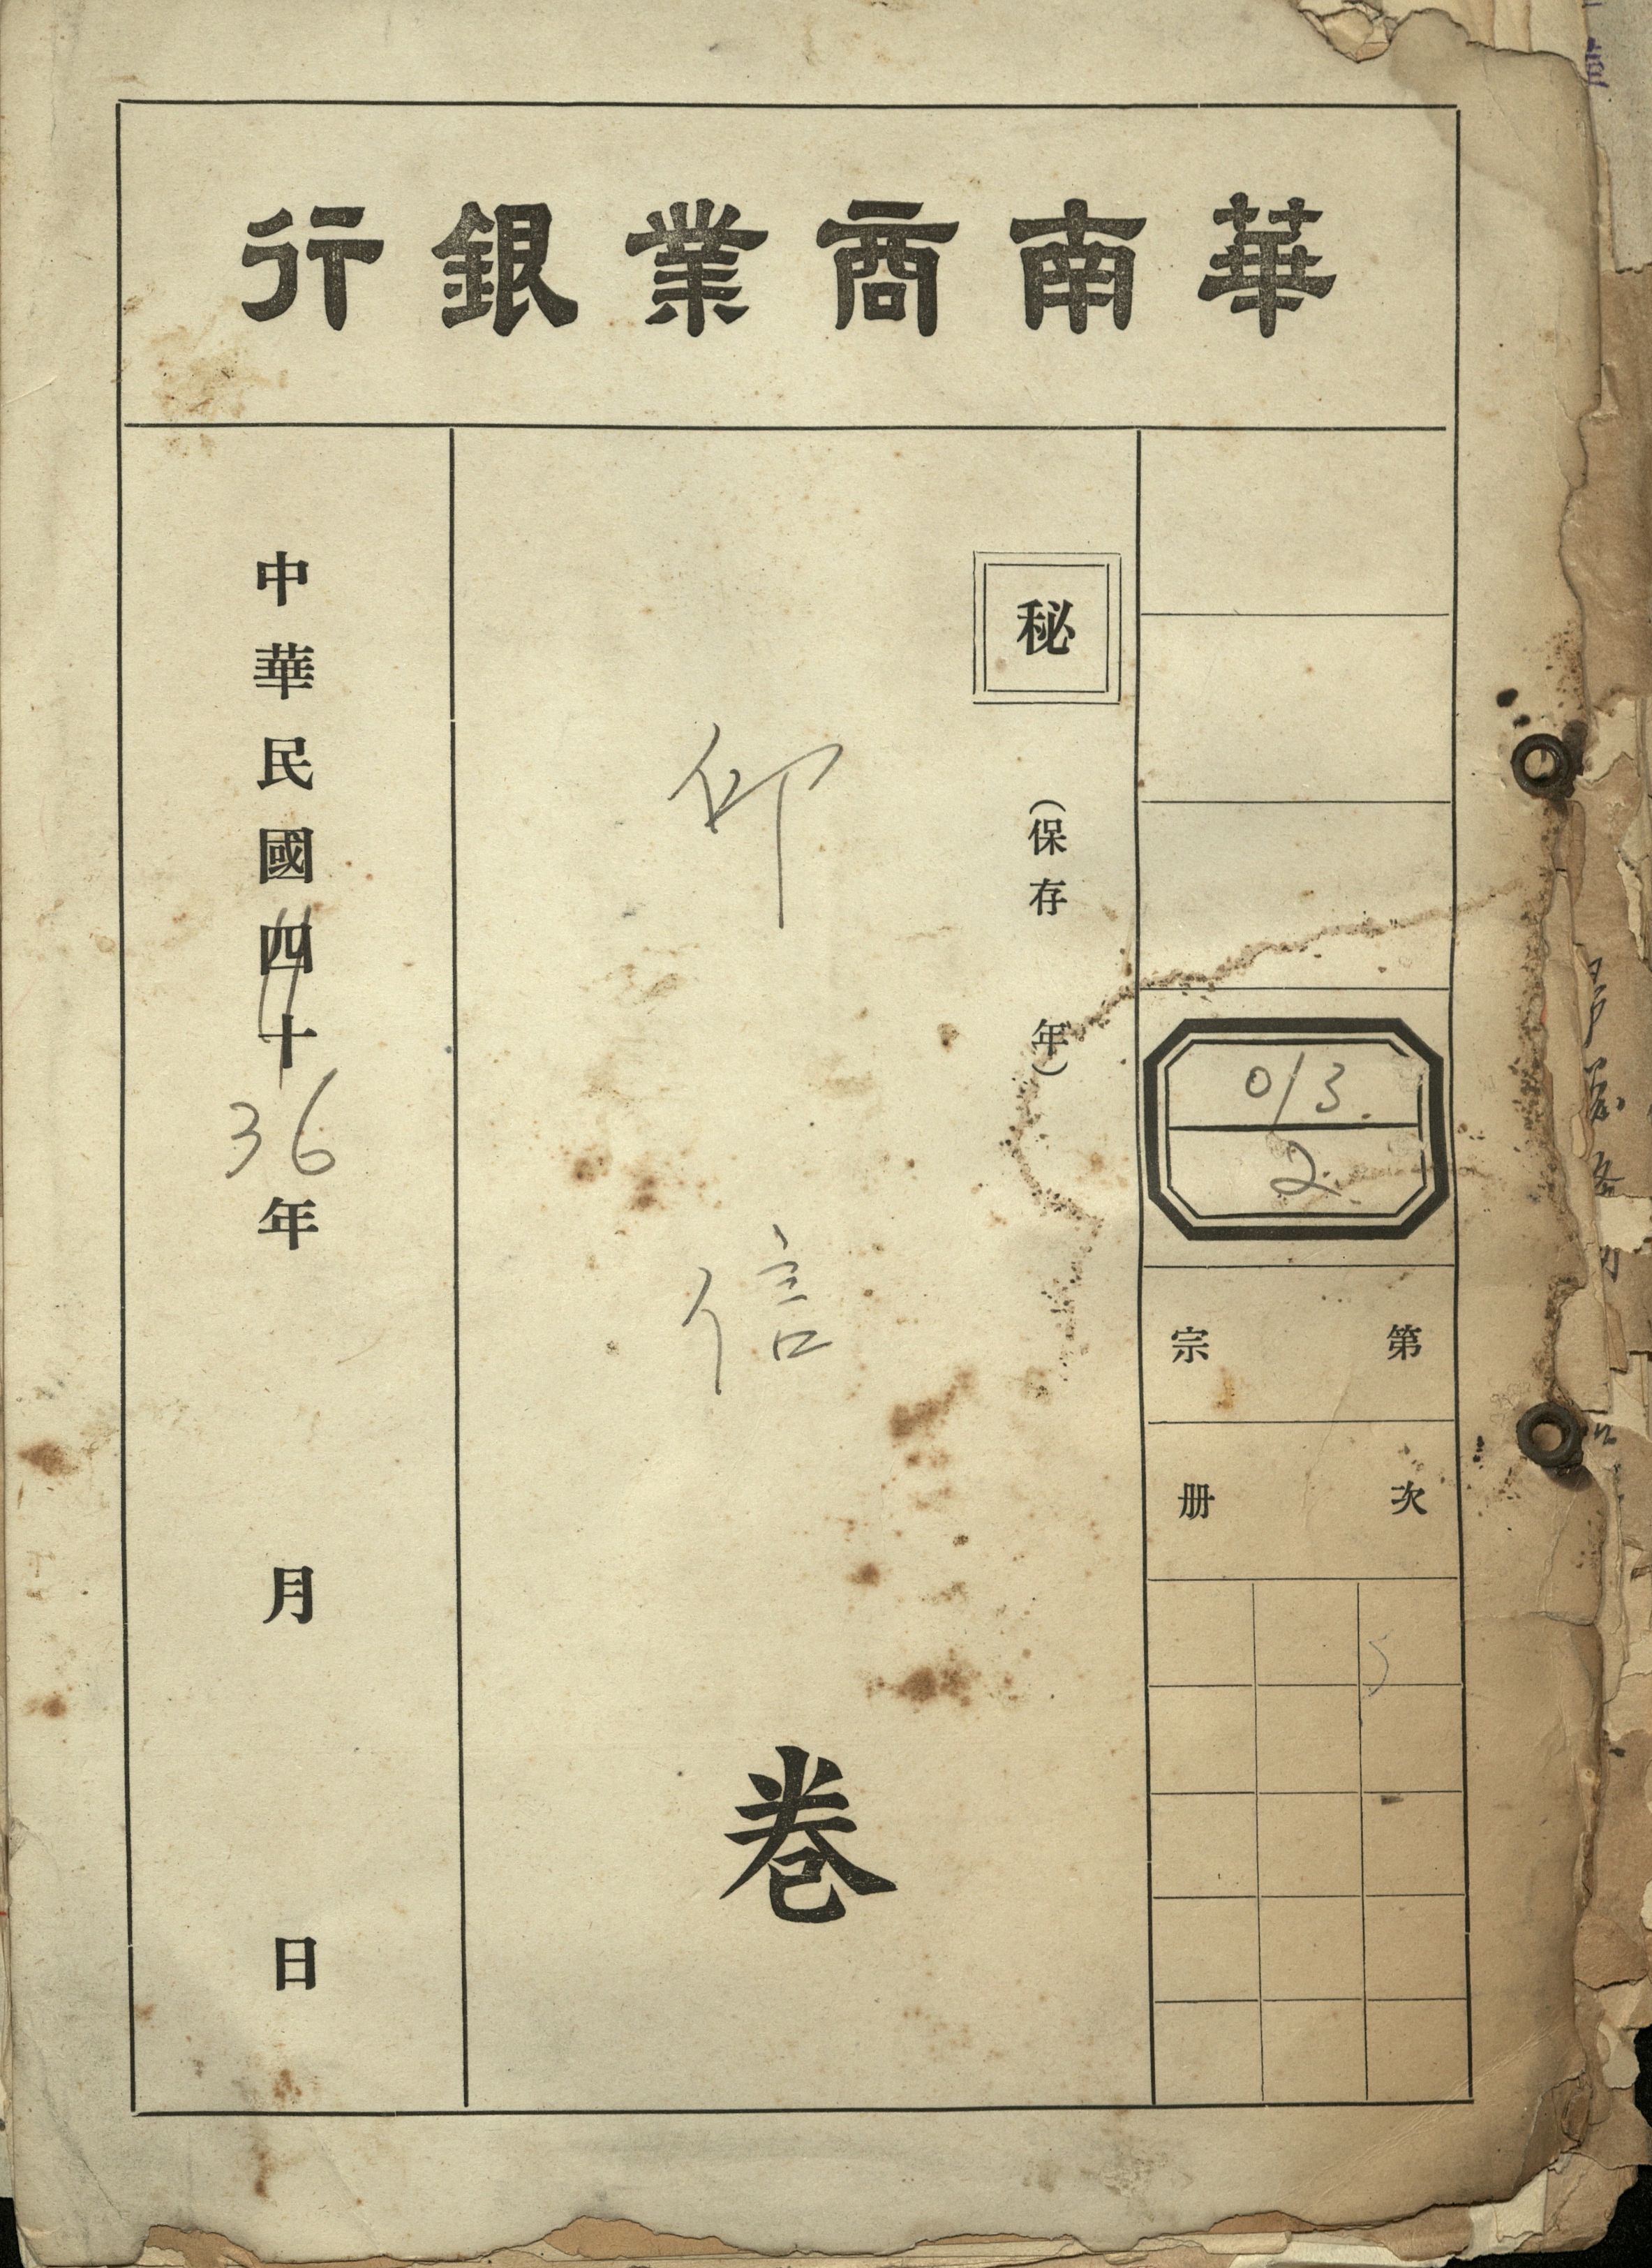 華南商業銀行
013.
2
第宗
次册
秘
(保存 年)
印信
卷
中華民國四十36年 月 日